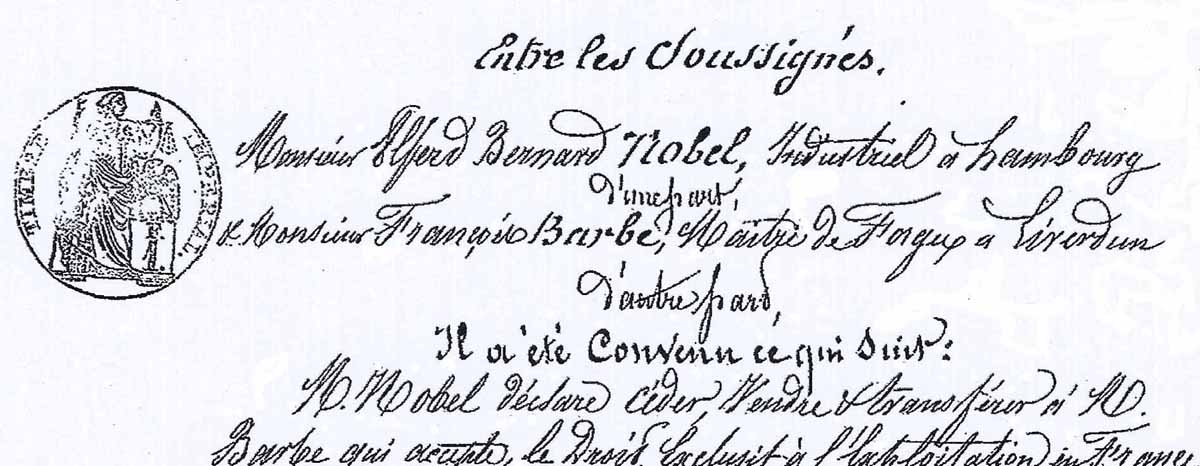 Entre les Soussignés.
TIMBRE IMPERIAL.
Monsieur Alferd Bernard Nobel, Industriel à hambourg
d'une part,
& Monsieur François Barbe, Maître de Forges à Liverdun
d'autre part,
Il a été Convenu ce qui suit:
M. Nobel déclare céder, Vendre & transférer à M.
Barbe qui accepte, le Droit Exclusif à l'Exploitation en Franc